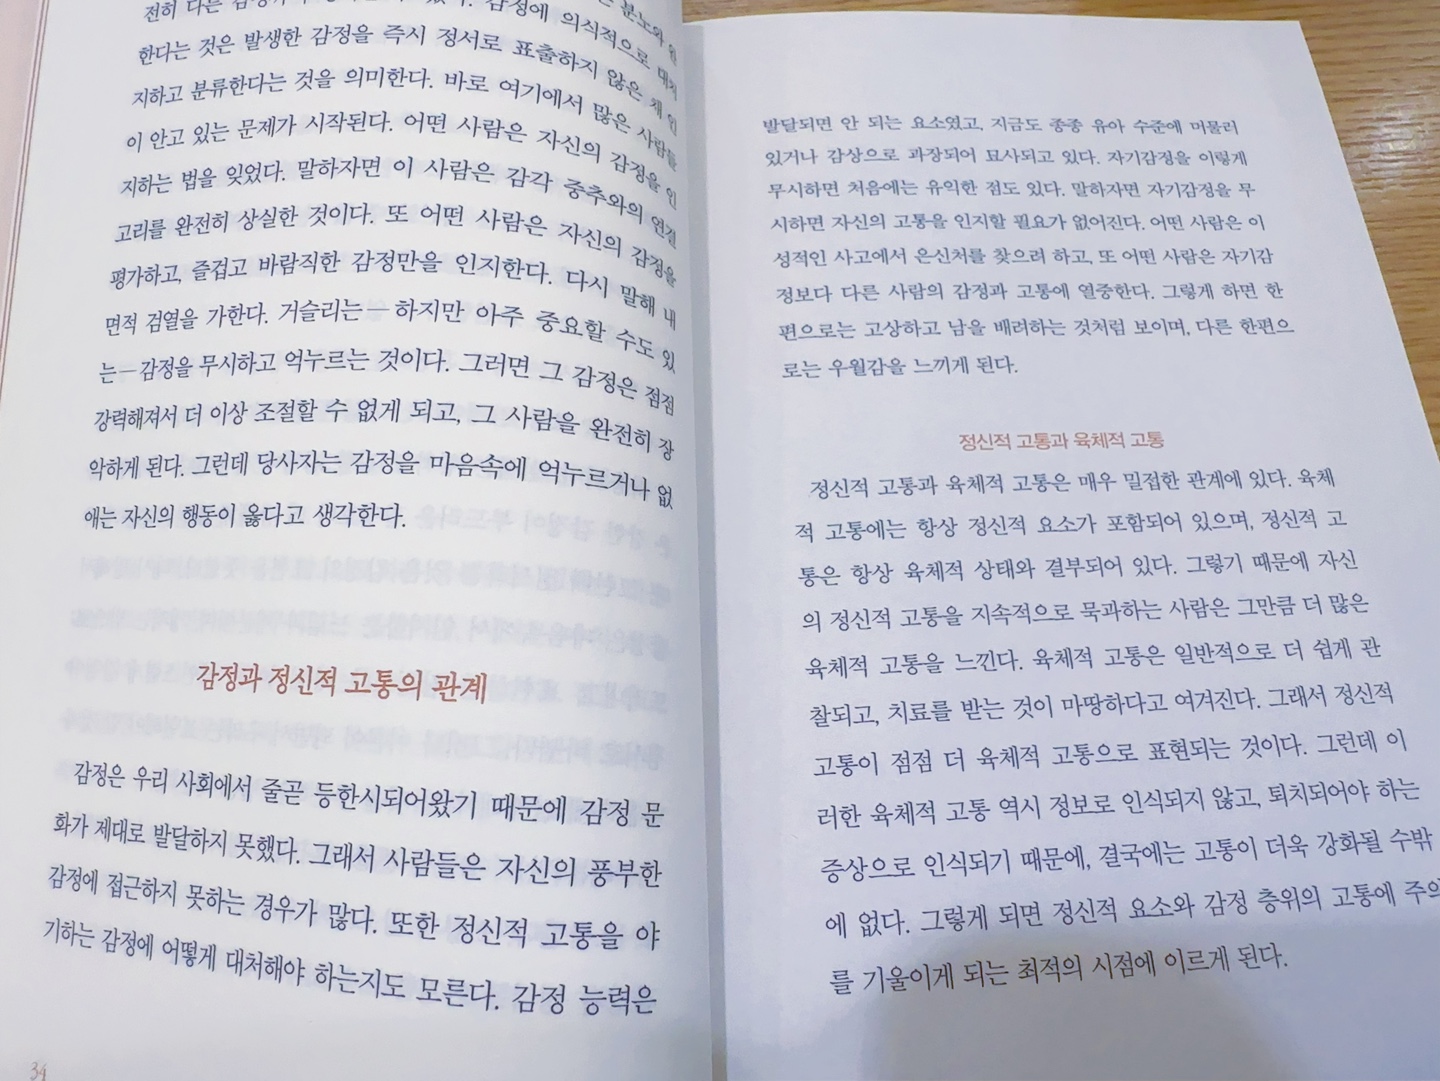 전히 다른 분노와
한다는 것은 발생한 감정을 즉시 정서로 표출하지 않은 채 인
지하고 분류한다는 것을 의미한다. 바로 여기에서 많은 사람들
이 안고 있는 문제가 시작된다. 어떤 사람은 자신의 감정을 인
지하는 법을 잊었다. 말하자면 이 사람은 감각 중추와의 연결
고리를 완전히 상실한 것이다. 또 어떤 사람은 자신의 감정을
평가하고, 즐겁고 바람직한 감정만을 인지한다. 다시 말해 내
면적 검열을 가한다. 거슬리는—하지만 아주 중요할 수도 있
는—감정을 무시하고 억누르는 것이다. 그러면 그 감정은 점점
강력해져서 더 이상 조절할 수 없게 되고, 그 사람을 완전히 장
악하게 된다. 그런데 당사자는 감정을 마음속에 억누르거나 없
애는 자신의 행동이 옳다고 생각한다.
감정과 정신적 고통의 관계
감정은 우리 사회에서 줄곧 등한시되어왔기 때문에 감정 문
화가 제대로 발달하지 못했다. 그래서 사람들은 자신의 풍부한
감정에 접근하지 못하는 경우가 많다. 또한 정신적 고통을 야
기하는 감정에 어떻게 대처해야 하는지도 모른다. 감정 능력은
34
발달되면 안 되는 요소였고, 지금도 종종 유아 수준에 머물러
있거나 감상으로 과장되어 묘사되고 있다. 자기감정을 이렇게
무시하면 처음에는 유익한 점도 있다. 말하자면 자기감정을 무
시하면 자신의 고통을 인지할 필요가 없어진다. 어떤 사람은 이
성적인 사고에서 은신처를 찾으려 하고, 또 어떤 사람은 자기감
정보다 다른 사람의 감정과 고통에 열중한다. 그렇게 하면 한
편으로는 고상하고 남을 배려하는 것처럼 보이며, 다른 한편으
로는 우월감을 느끼게 된다.
정신적 고통과 육체적 고통
정신적 고통과 육체적 고통은 매우 밀접한 관계에 있다. 육체
적 고통에는 항상 정신적 요소가 포함되어 있으며, 정신적 고
통은 항상 육체적 상태와 결부되어 있다. 그렇기 때문에 자신
의 정신적 고통을 지속적으로 묵과하는 사람은 그만큼 더 많은
육체적 고통을 느낀다. 육체적 고통은 일반적으로 더 쉽게 관
찰되고, 치료를 받는 것이 마땅하다고 여겨진다. 그래서 정신적
고통이 점점 더 육체적 고통으로 표현되는 것이다. 그런데 이
러한 육체적 고통 역시 정보로 인식되지 않고, 퇴치되어야 하는
증상으로 인식되기 때문에, 결국에는 고통이 더욱 강화될 수밖
에 없다. 그렇게 되면 정신적 요소와 감정 층위의 고통에 주의
를 기울이게 되는 최적의 시점에 이르게 된다.